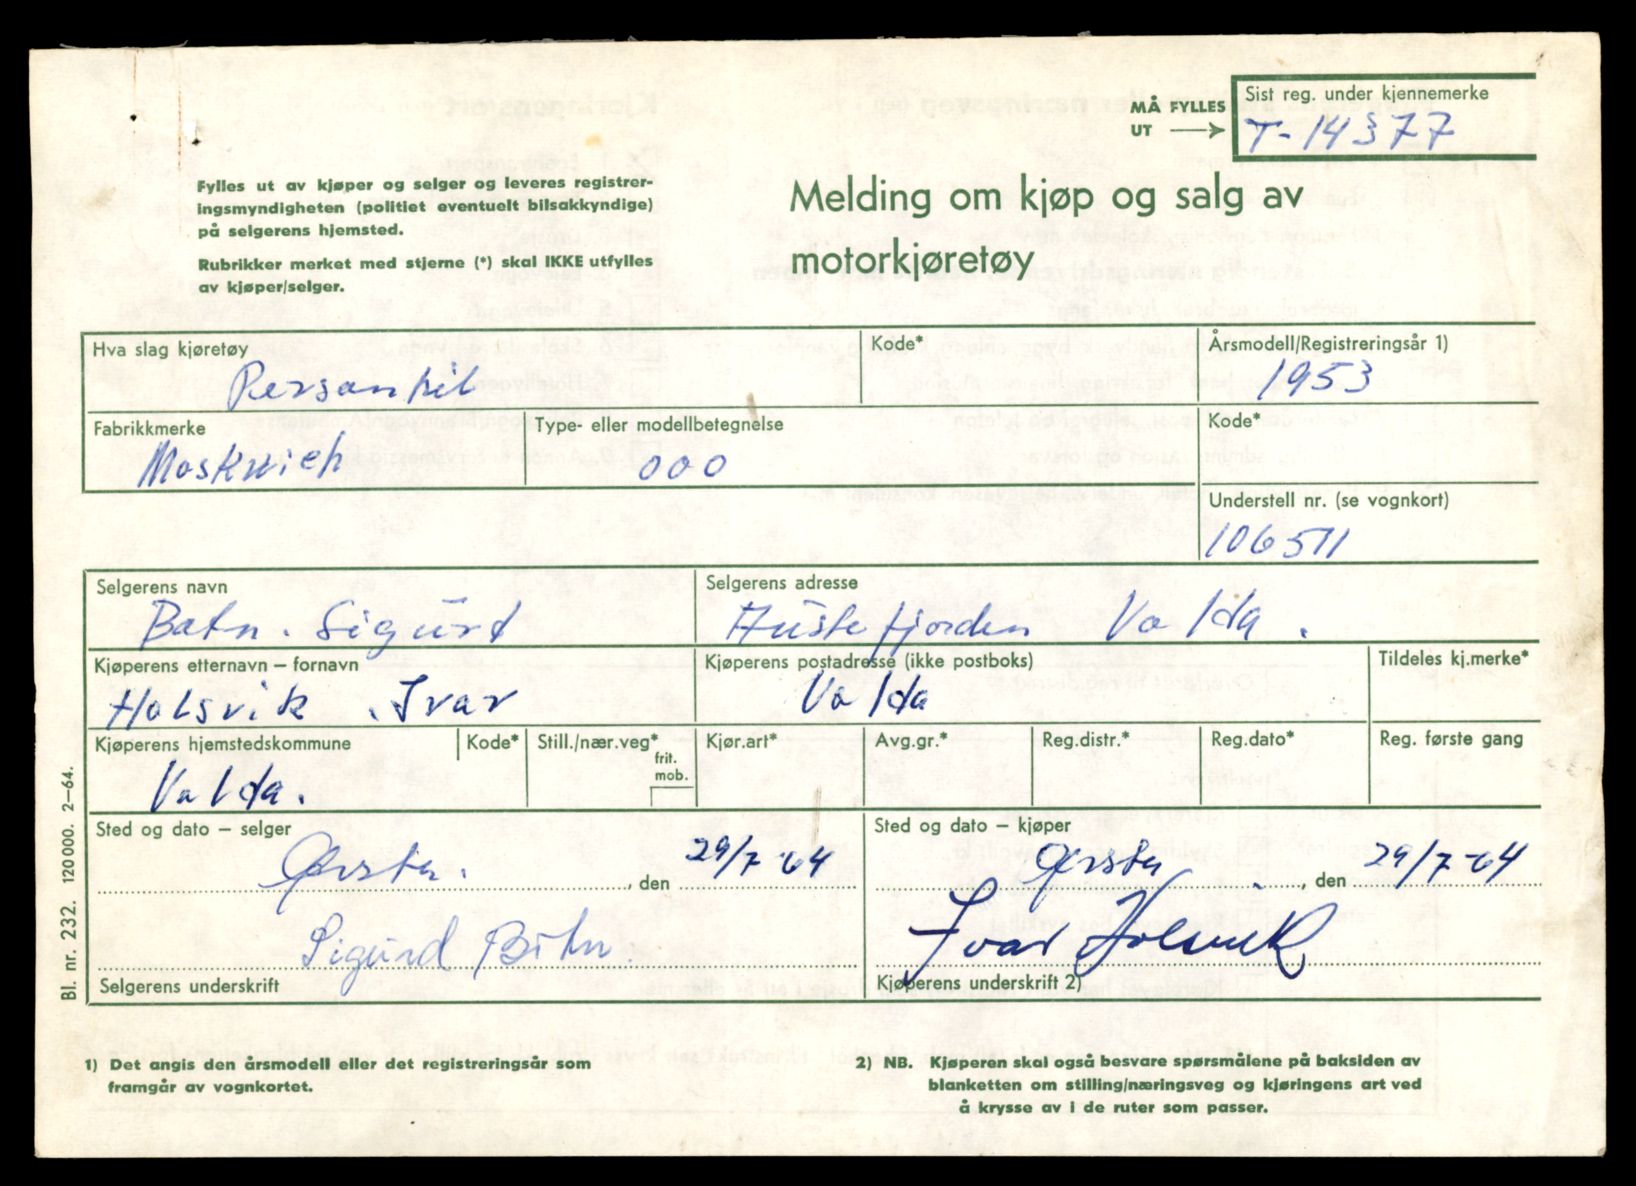 MÅ FYLLES
UT
Sist reg. under kjennemerke
T-14377
Fylles ut av kjøper og selger og leveres registrer-
ingsmyndigheten (politiet eventuelt bilsakkyndige)
på selgerens hjemsted.
Rubrikker merket med stjerne (*) skal IKKE utfylles
av kjøper/selger.
Melding om kjøp og salg av
motorkjøretøy
Hva slag kjøretøy
Personbil
Kode*
Årsmodell/Registreringsår 1)
1953
Fabrikkmerke
Moskwich
Type- eller modellbetegnelse
000
Kode*
Understell nr. (se vognkort)
106511
Selgerens navn
Botn. Sigurd
Selgerens adresse
Austefjorden Volda.
Kjøperens etternavn – fornavn
Holsvik, Ivar
Kjøperens postadresse (ikke postboks)
Volda
Tildeles kj.merke*
Kjøperens hjemstedskommune
Volda.
Kode*
Still./nær.veg*
frit.
mob.
Kjør.art*
Avg.gr.*
Reg.distr.*
Reg.dato*
Reg. første gang
Sted og dato – selger
Ørsta. , den 29/7-64
Sigurd Botn.
Selgerens underskrift
Sted og dato – kjøper
Ørsta , den 29/7-64
Ivar Holsvik
Kjøperens underskrift 2)
Bl. nr. 232. 120 000. 2–64.
1) Det angis den årsmodell eller det registreringsår som
framgår av vognkortet.
2) NB. Kjøperen skal også besvare spørsmålene på baksiden av
blanketten om stilling/næringsveg og kjøringens art ved
å krysse av i de ruter som passer.